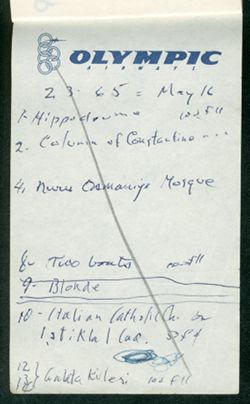 OLYMPIC
AIRWAYS
23-65 = May 16
1- Hippodrome
2- Column of Constantine ---
4, Nuru Osmaniye Mosque
8- Two boats
9- Blonde
10- Italian Catholic Ch. on
Istiklal Cad. 5.f4
12}
13} Galata Kulesi 100 f11